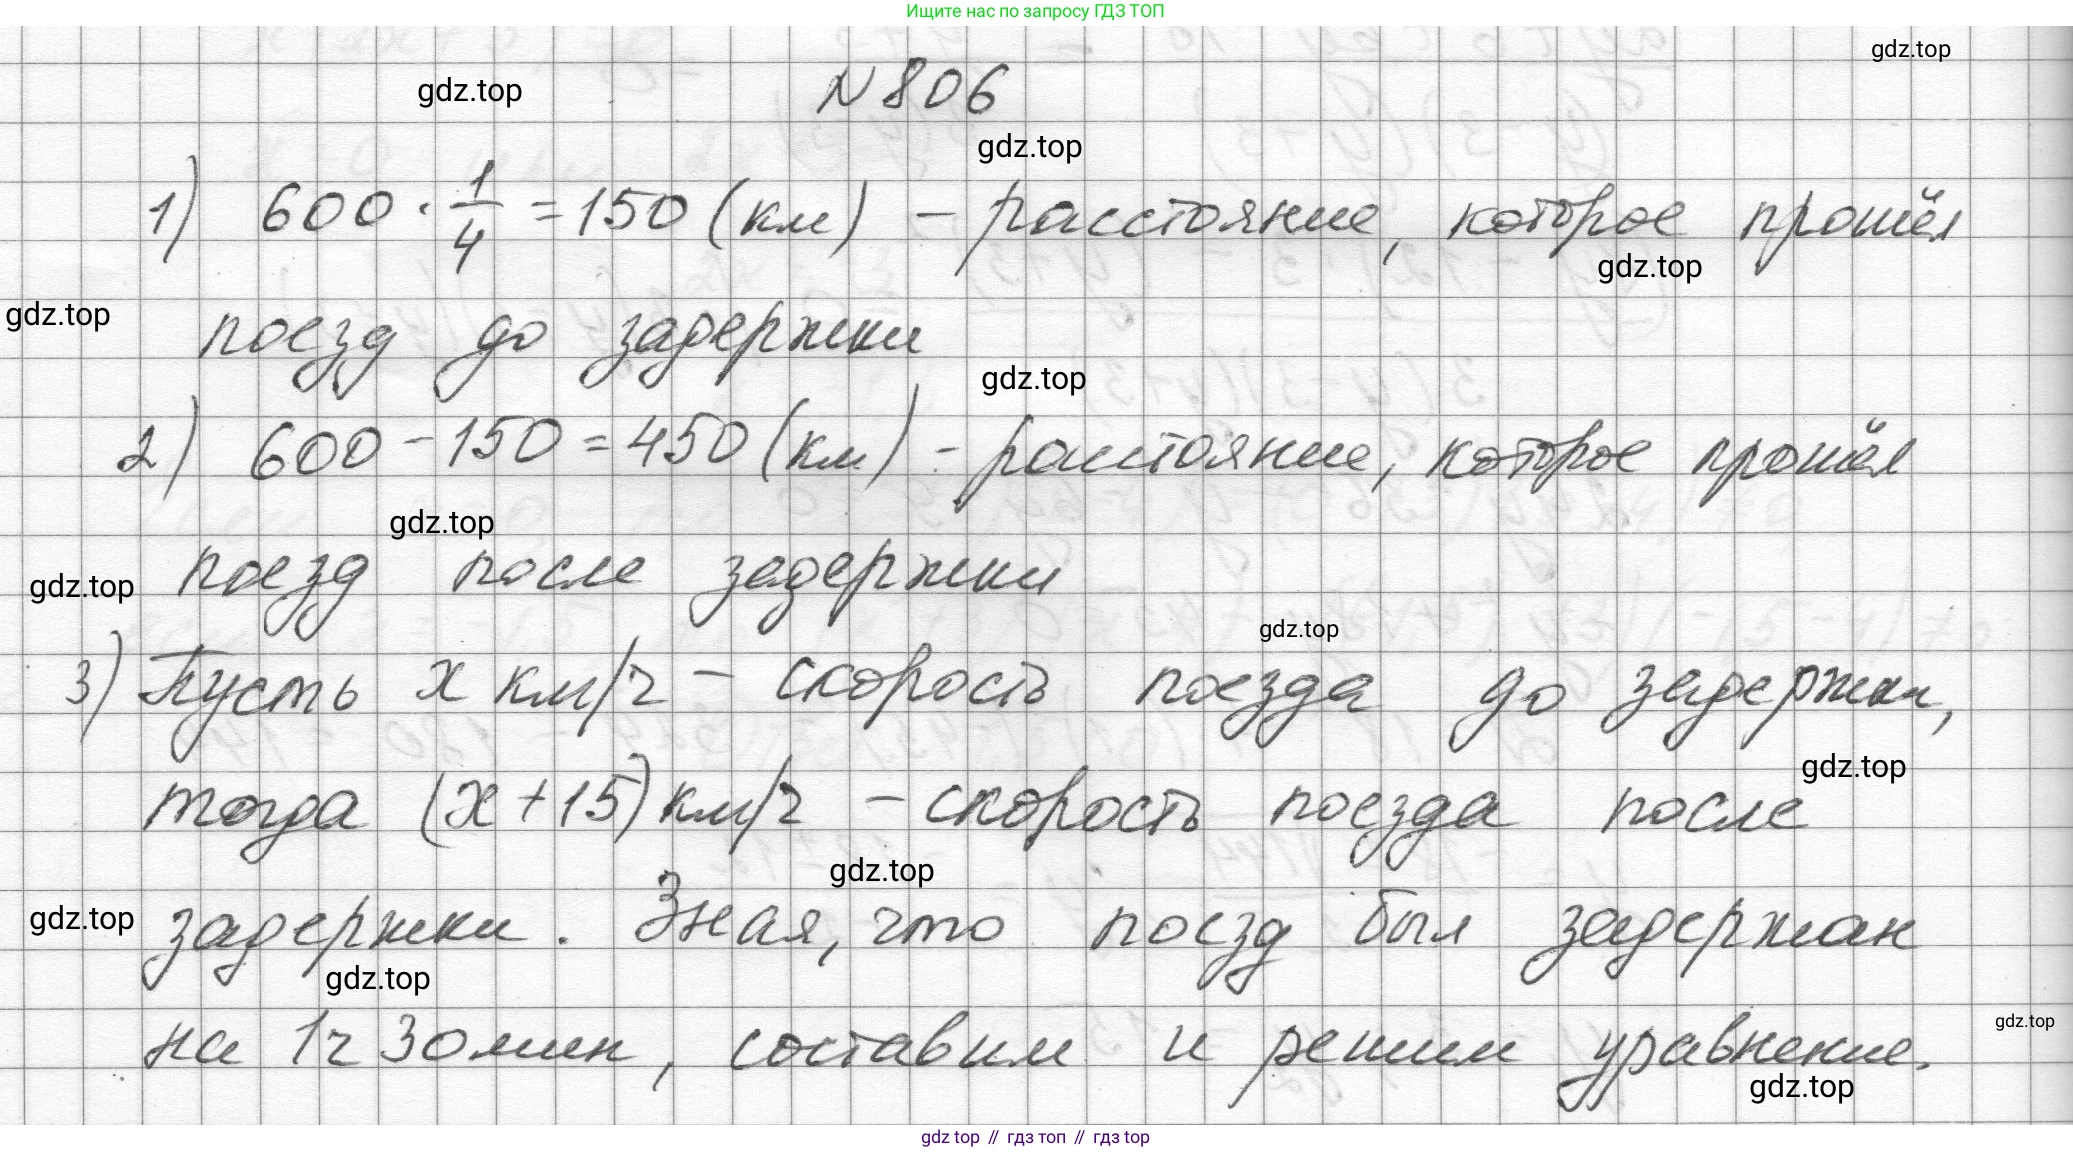 Ищите нас по запросу ГДЗ ТОП
gdz.top
gdz.top
№ 806
gdz.top
1) 600 · 1/4 = 150 (км) – расстояние, которое прошёл
gdz.top
gdz.top
поезд до задержки
gdz.top
2) 600 – 150 = 450 (км) – расстояние, которое прошёл
gdz.top
поезд после задержки
gdz.top
gdz.top
3) Пусть х км/ч – скорость поезда до задержки,
gdz.top
тогда (х + 15) км/ч – скорость поезда после
gdz.top
gdz.top
задержки. Зная, что поезд был задержан
gdz.top
на 1ч 30 мин, составим и решим уравнение.
gdz.top
gdz.top
gdz top // гдз топ // гдз top